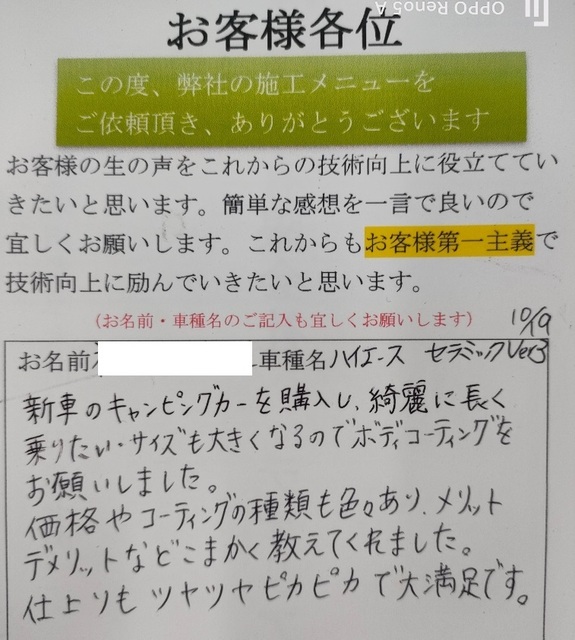 OPPO Reno5 A
お客様各位
この度、弊社の施工メニューを
ご依頼頂き、ありがとうございます
お客様の生の声をこれからの技術向上に役立ててい
きたいと思います。簡単な感想を一言で良いので
宜しくお願いします。これからもお客様第一主義で
技術向上に励んでいきたいと思います。
(お名前・車種名のご記入も宜しくお願いします)
10/19
お名前 車種名 ハイエース セラミックVer3
新車のキャンピングカーを購入し、綺麗に長く
乗りたい・サイズも大きくなるのでボディコーティングを
お願いしました。
価格やコーティングの種類も色々あり、メリット
デメリットなどこまかく教えてくれました。
仕上りもツヤツヤピカピカで大満足です。